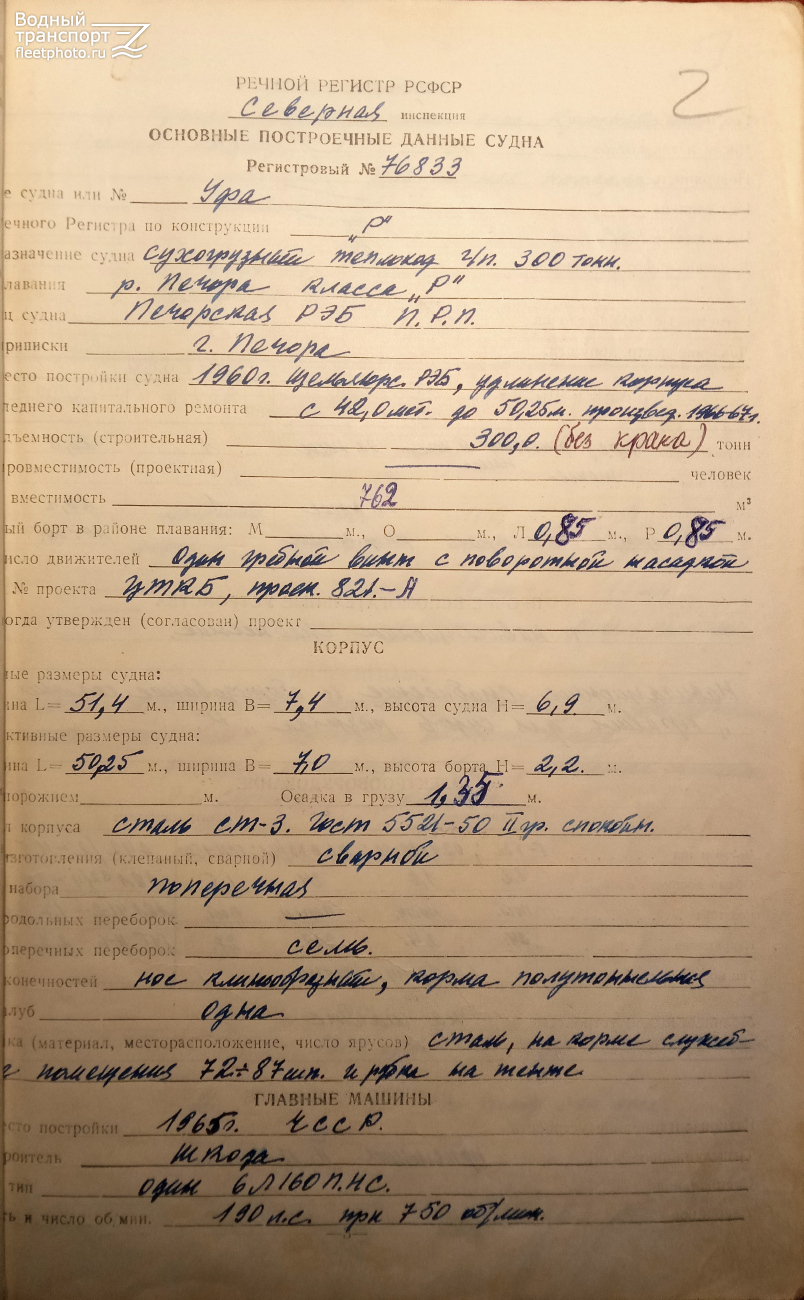 Водный
транспорт
fleetphoto.ru
2
РЕЧНОЙ РЕГИСТР РСФСР
Северная инспекция
ОСНОВНЫЕ ПОСТРОЕЧНЫЕ ДАННЫЕ СУДНА
Регистровый № 76833
е судна или № Уфа
ечного Регистра по конструкции „Р"
азначение судна сухогрузный теплоход г/п. 300 тонн.
лавания р. Печора класса „Р"
ц судна Печорская РЭБ П.Р.П.
риписки г. Печора
есто постройки судна 1960г. Щельяюрс. РЭБ, удлинение корпуса
леднего капитального ремонта с 42,0 мет. до 50,25м. произвед. 1966-67г.
дъемность (строительная) 300,0. (без крана) тонн
ровместимость (проектная) — человек
вместимость 762 м³
ый борт в районе плавания: М м., О м., Л 0,85 м., Р 0,85 м.
исло движителей Один гребной винт с поворотной насадкой
№ проекта ЦТКБ, проек. 821.-А
огда утвержден (согласован) проект
КОРПУС
ные размеры судна:
ина L= 51,4 м., ширина В= 7,4 м., высота судна Н= 6,9 м.
ктивные размеры судна:
ина L= 50,25 м., ширина В= 7,0 м., высота борта Н= 2,2. м.
порожнем м. Осадка в грузу 1,35 м.
л корпуса сталь ст-3. Гост 5521-50 II гр. спокойн.
изготовления (клепаный, сварной) сварной
набора поперечная
родольных переборок —
оперечных переборок семь.
конечностей нос клинообразный, корма полутоннельная
алуб одна
ка (материал, месторасположение, число ярусов) сталь, на корме служеб-
помещения 72÷87 шп. и рубка на тенте.
ГЛАВНЫЕ МАШИНЫ
есто постройки 1965г. ЧССР.
роитель Шкода
тип один 6Л160П.НС.
ть и число об/мин. 190 л.с. при 750 об/мин.